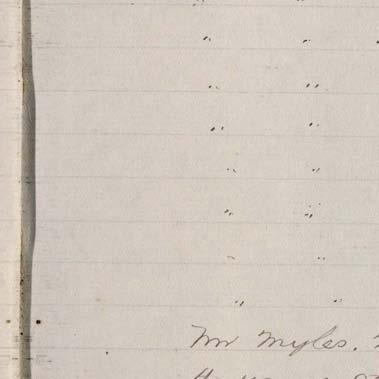 " "
" "
" "
" "
" "
" "
" "
" "
Mr Myles.